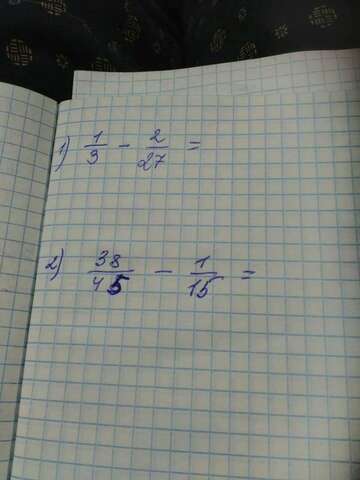 1) 1/3 - 2/27 =
2) 38/45 - 1/15 =